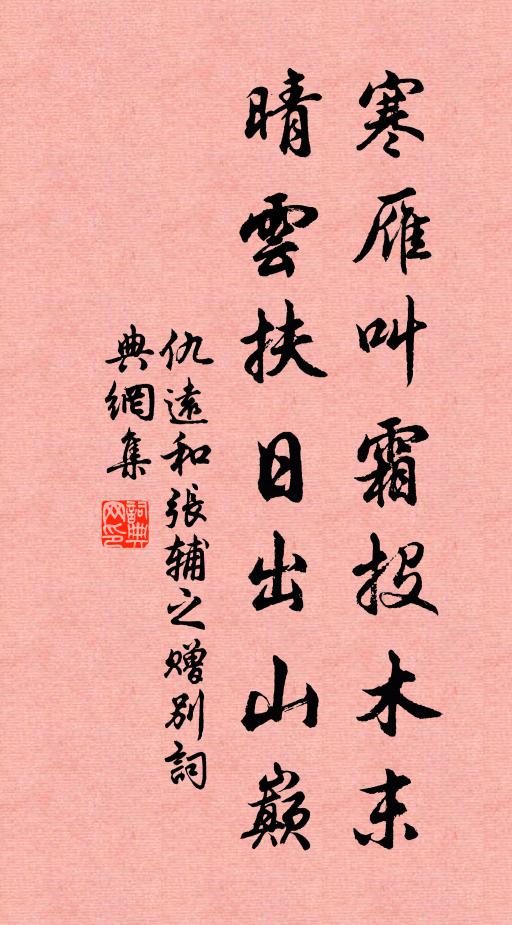 寒雁叫霜投木末
晴雲扶日出山巔
仇遠和張辅之赠别詞
典網集
詞典网印